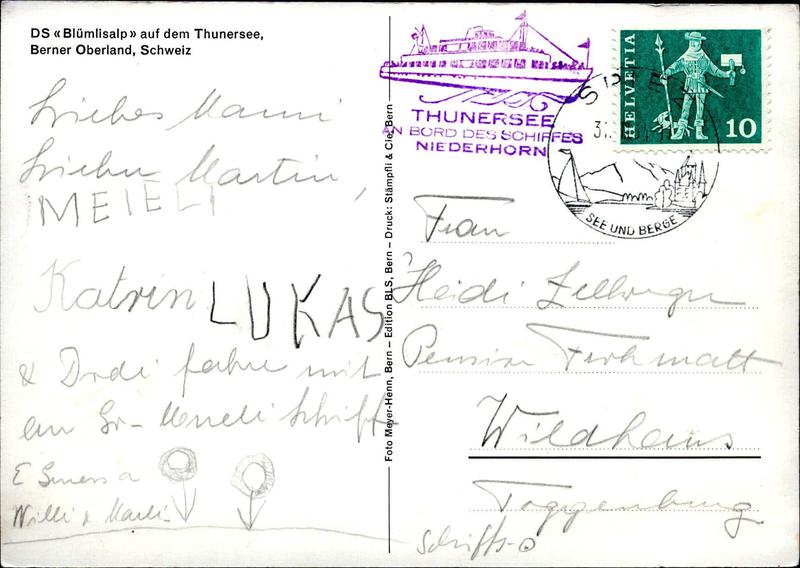 DS «Blümlisalp» auf dem Thunersee,
Berner Oberland, Schweiz
Liebes Mami
Lieber Martin,
MEIELI
Katrin LUKAS
& Dodi fahre mit
em Gr- Schiff
E
Willi &
Foto Meyer-Henn, Bern – Edition BLS, Bern – Druck: Stämpfli & Cie, Bern
THUNERSEE
AN BORD DES SCHIFFES
NIEDERHORN
HELVETIA
10
SPIEZ
SEE UND BERGE
Frau
Heidi Zellweger
Pension
Wildhaus
Toggenburg
Schiffs-